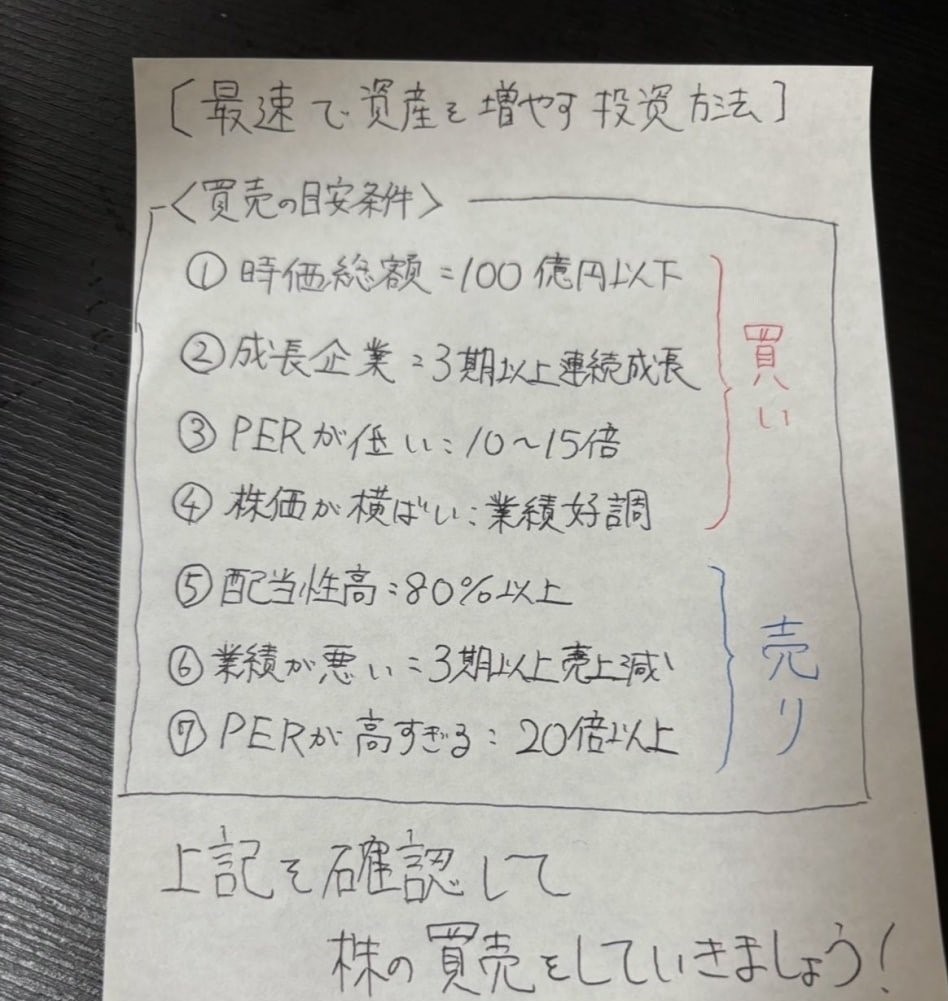 ［最速で資産を増やす投資方法］
〈買売の目安条件〉
①時価総額=100億円以下
②成長企業=3期以上連続成長
③PERが低い:10〜15倍
④株価が横ばい:業績好調
買い
⑤配当性高=80%以上
⑥業績が悪い=3期以上売上減
⑦PERが高すぎる:20倍以上
売り
上記を確認して
株の買売をしていきましょう!